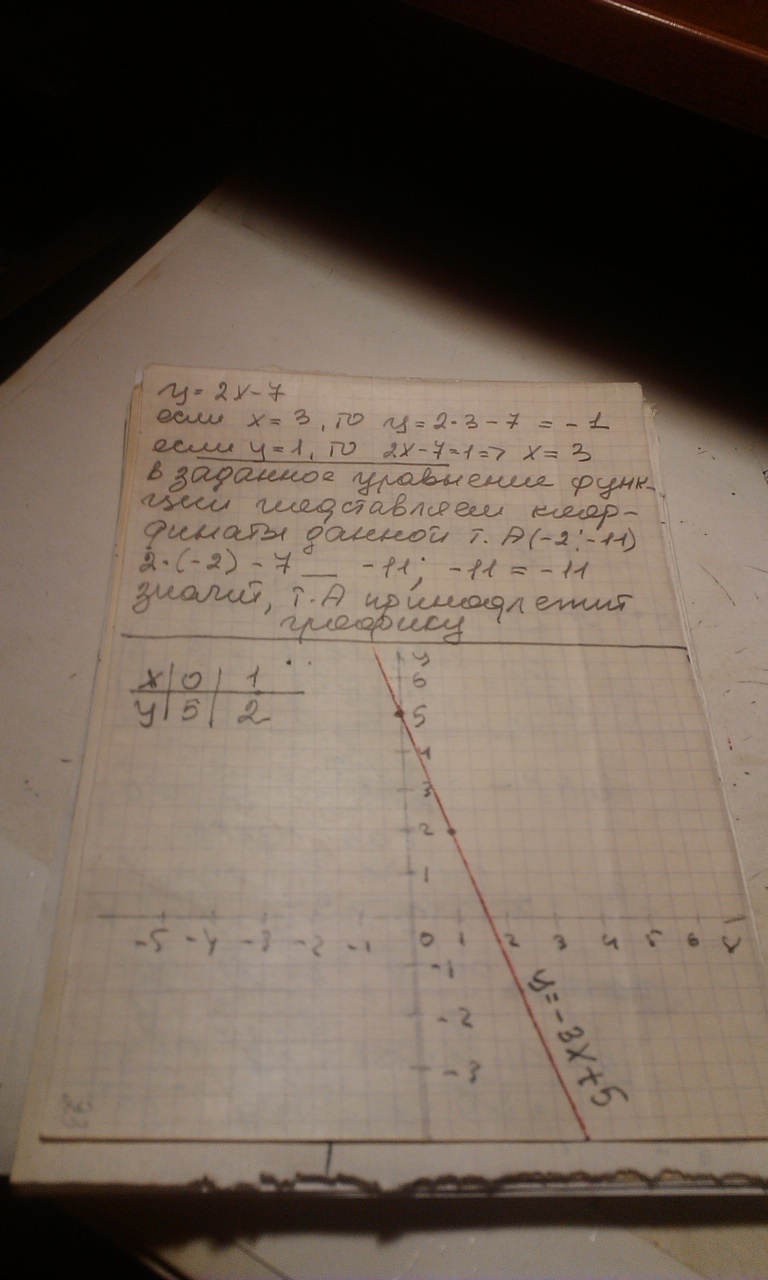 y = 2x - 7
если x = 3, то y = 2·3 - 7 = -1
если y = 1, то 2x - 7 = 1 => x = 3
В заданное уравнение функ-
ции подставляем коор-
динаты данной т. A(-2; -11)
2·(-2) - 7 __ -11; -11 = -11
значит, т. A принадлежит
графику
x | 0 | 1
y | 5 | 2
y
6
5
4
3
2
1
-5 -4 -3 -2 -1 0 1 2 3 4 5 6 x
-1
-2
-3
y = -3x + 5